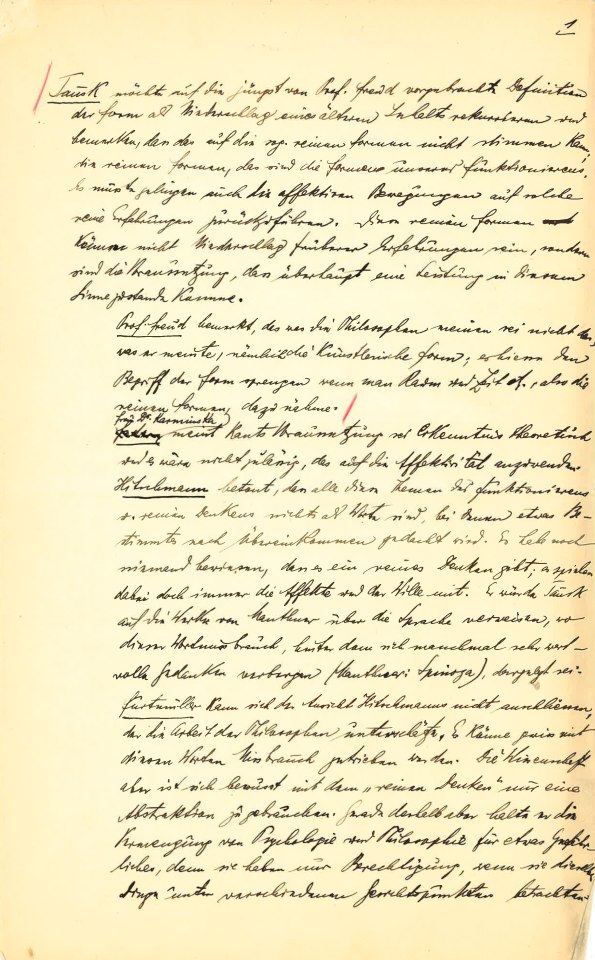 1
Tausk möchte auf die jüngst von Prof. Freud vorgebrachte Definition
der Form als Niederschlag eines älteren Inhalts rekurrieren und
bemerken, dass das auf die sog. reinen Formen nicht stimmen kann;
die reinen Formen, das sind die Formen unseres Funktionierens.
Es müsste gelingen auch die affektiven Bewegungen auf solche
reine Erfahrungen zurückzuführen. Diese reinen Formen
können nicht Niederschlag früherer Erfahrungen sein, sondern
sind die Voraussetzung, dass überhaupt eine Leistung in diesem
Sinne zustande komme.
Prof. Freud bemerkt, das was die Philosophen meinen sei nicht das,
was er meinte, nämlich die künstlerische Form; es hiesse den
Begriff der Form sprengen wenn man Raum und Zeit etc., also die
reinen Formen, dazu nehme.
Frl. Dr. Karminska
meint Kants Voraussetzung sei Erkenntnis theoretisch
und es wäre nicht zulässig, das auf die Affektivität anzuwenden.
Hitschmann betont, dass alle diese Themen des Funktionierens
u. reinen Denkens nichts als Worte sind, bei denen etwas Be-
stimmtes nach Übereinkommen gedacht wird. Es habe noch
niemand bewiesen, dass es ein reines Denken gibt; es spielen
dabei doch immer die Affekte und der Wille mit. Er würde Tausk
auf die Werke von Mauthner über die Sprache verweisen, wo
dieser Wortmissbrauch, hinter dem sich manchmal sehr wert-
volle Gedanken verbergen (Mauthner: Spinoza), dargelegt sei.
Furtmüller kann sich der Ansicht Hitschmanns nicht anschliessen,
der die Arbeit der Philosophen unterschätze. Es könne gewiss mit
diesen Worten Missbrauch getrieben werden. Die Wissenschaft
aber ist sich bewusst mit dem „reinen Denken" nur eine
Abstraktion zu gebrauchen. Gerade deshalb aber halte er die
Vermengung von Psychologie und Philosophie für etwas Gefähr-
liches, denn sie haben nur Berechtigung, wenn sie dieselben
Dinge unter verschiedenen Gesichtspunkten betrachten.